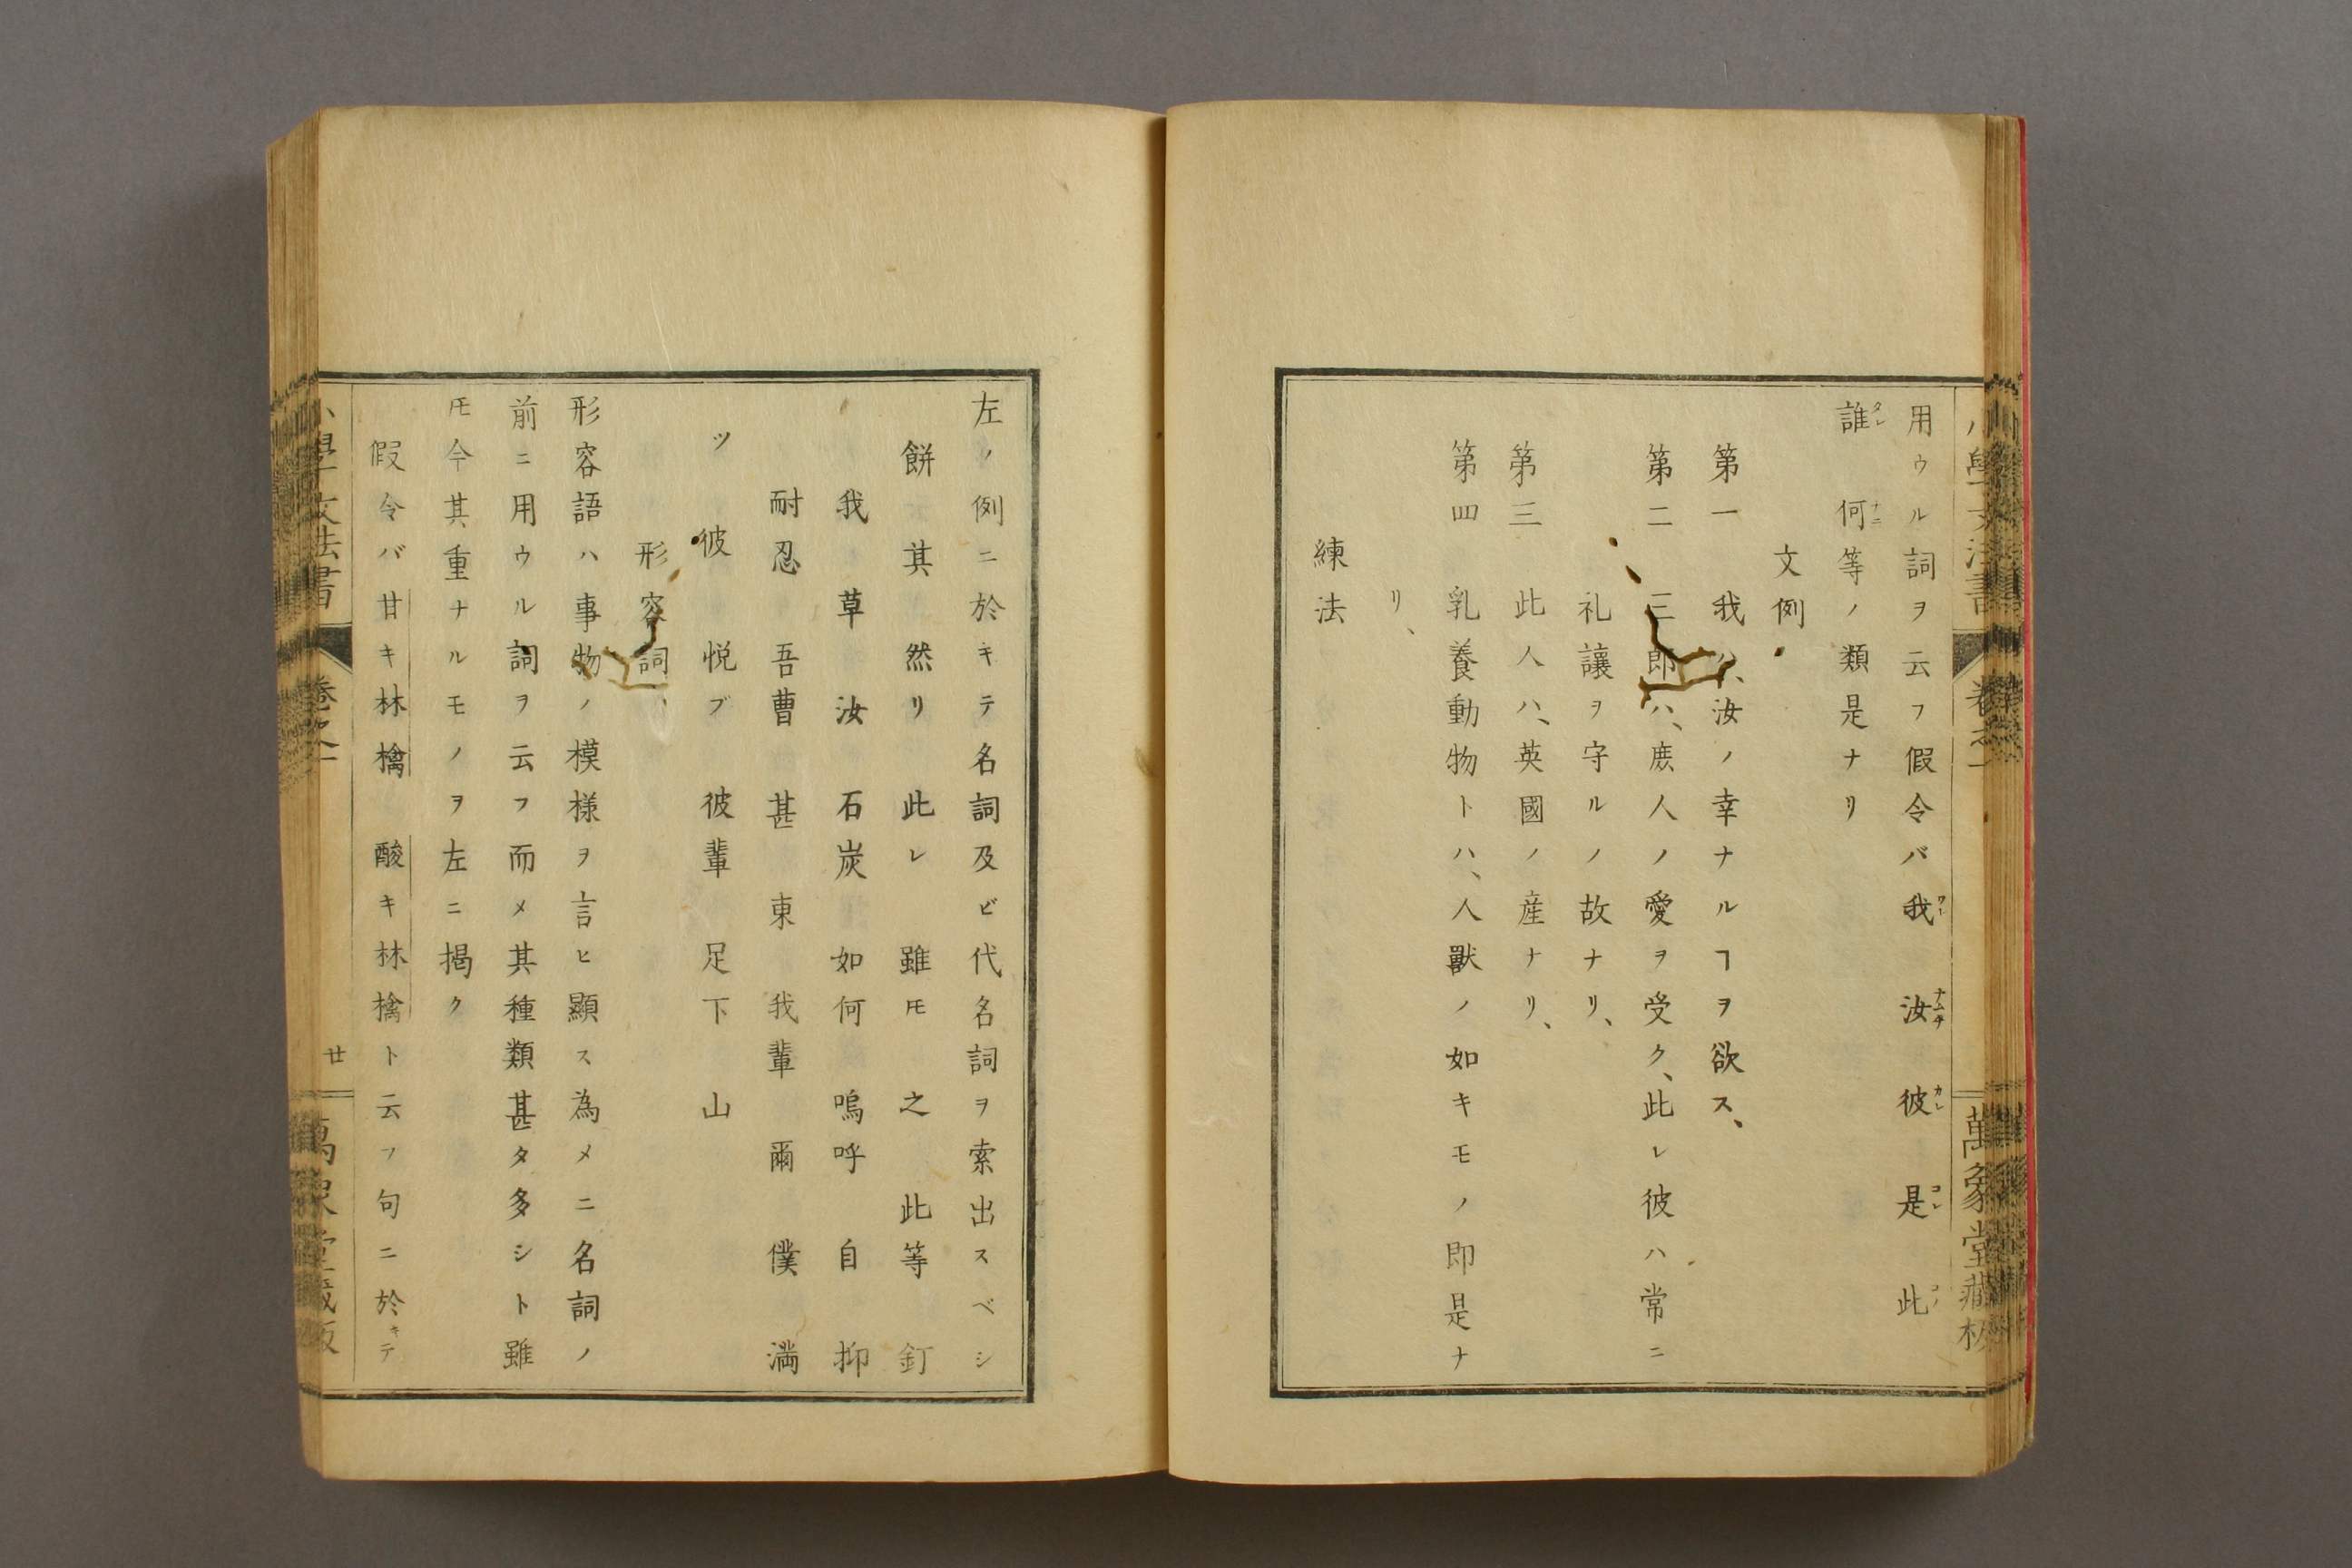 小學文法書 卷之一 萬象堂藏板
用ウル詞ヲ云フ假令バ我ワレ 汝ナムチ 彼カレ 是コレ 此コノ
誰タレ 何ナニ等ノ類是ナリ
文例
第一 我ハ、汝ノ幸ナルヿヲ欲ス、
第二 三郎ハ、庶人ノ愛ヲ受ク、此レ彼ハ常ニ
礼讓ヲ守ルノ故ナリ、
第三 此人ハ、英國ノ産ナリ、
第四 乳養動物トハ、人獸ノ如キモノ即是ナ
リ、
練法
左ノ例ニ於キテ名詞及ビ代名詞ヲ索出スベシ
餅 其 然リ 此レ 雖𪜈 之 此等 釘
我 草 汝 石炭 如何 嗚呼 自 抑
耐忍 吾曹 甚 東 我輩 爾 僕 満
ツ 彼 悦ブ 彼輩 足下 山
形容詞、
形容語ハ事物ノ模様ヲ言ヒ顯ス為メニ名詞ノ
前ニ用ウル詞ヲ云フ而メ其種類甚タ多シト雖
𪜈今其重ナルモノヲ左ニ掲ク
假令バ甘キ林檎 酸キ林檎ト云フ句ニ於キテ
小學文法書 卷之一 廿 萬象堂藏板